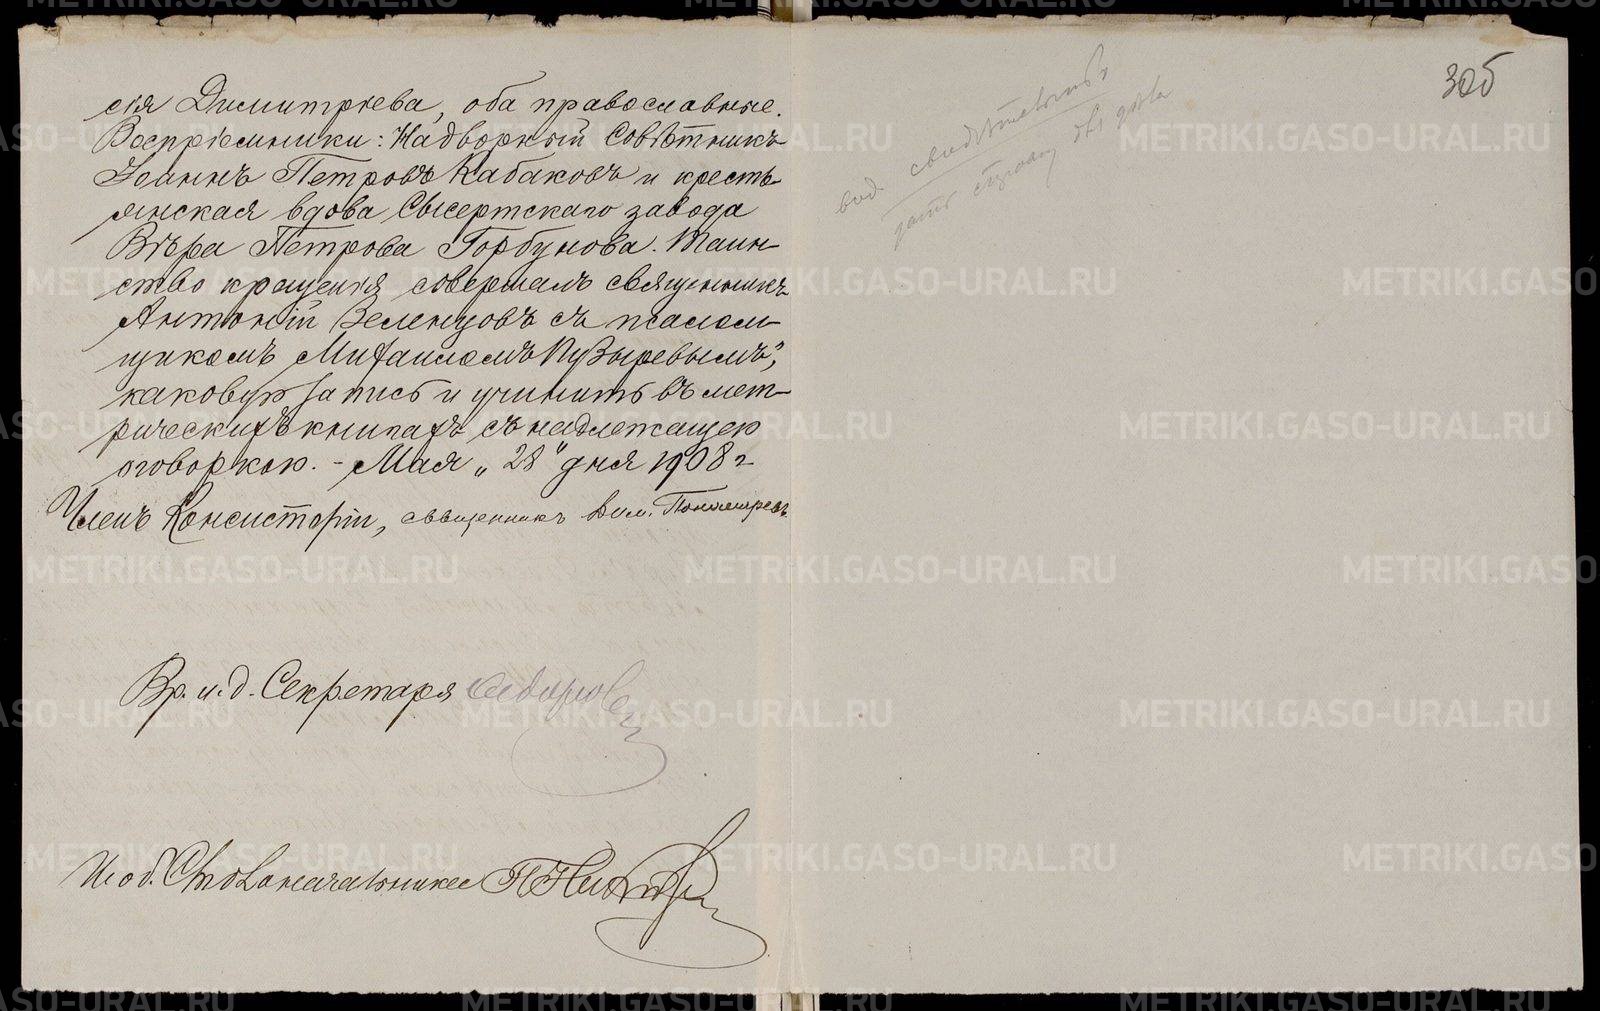 сія Димитріева, оба православные.
Воспріемники: Надворный Совѣтникъ
Іоаннъ Петровъ Кабаковъ и кресть-
янская вдова Сысертскаго завода
Вѣра Петрова Горбунова. Таин-
ство крещенія совершалъ священникъ
Антоній Зеленцовъ съ псалом-
щикомъ Михаиломъ Пузыревымъ",
каковую запись и учинить въ мет-
рическихъ книгахъ съ надлежащею
оговоркою. - Мая „28" дня 1908 г.
Членъ Консисторіи, священникъ
Вр. и. д. Секретаря
И. о д. Столоначальника
305
METRIKI.GASO-URAL.RU